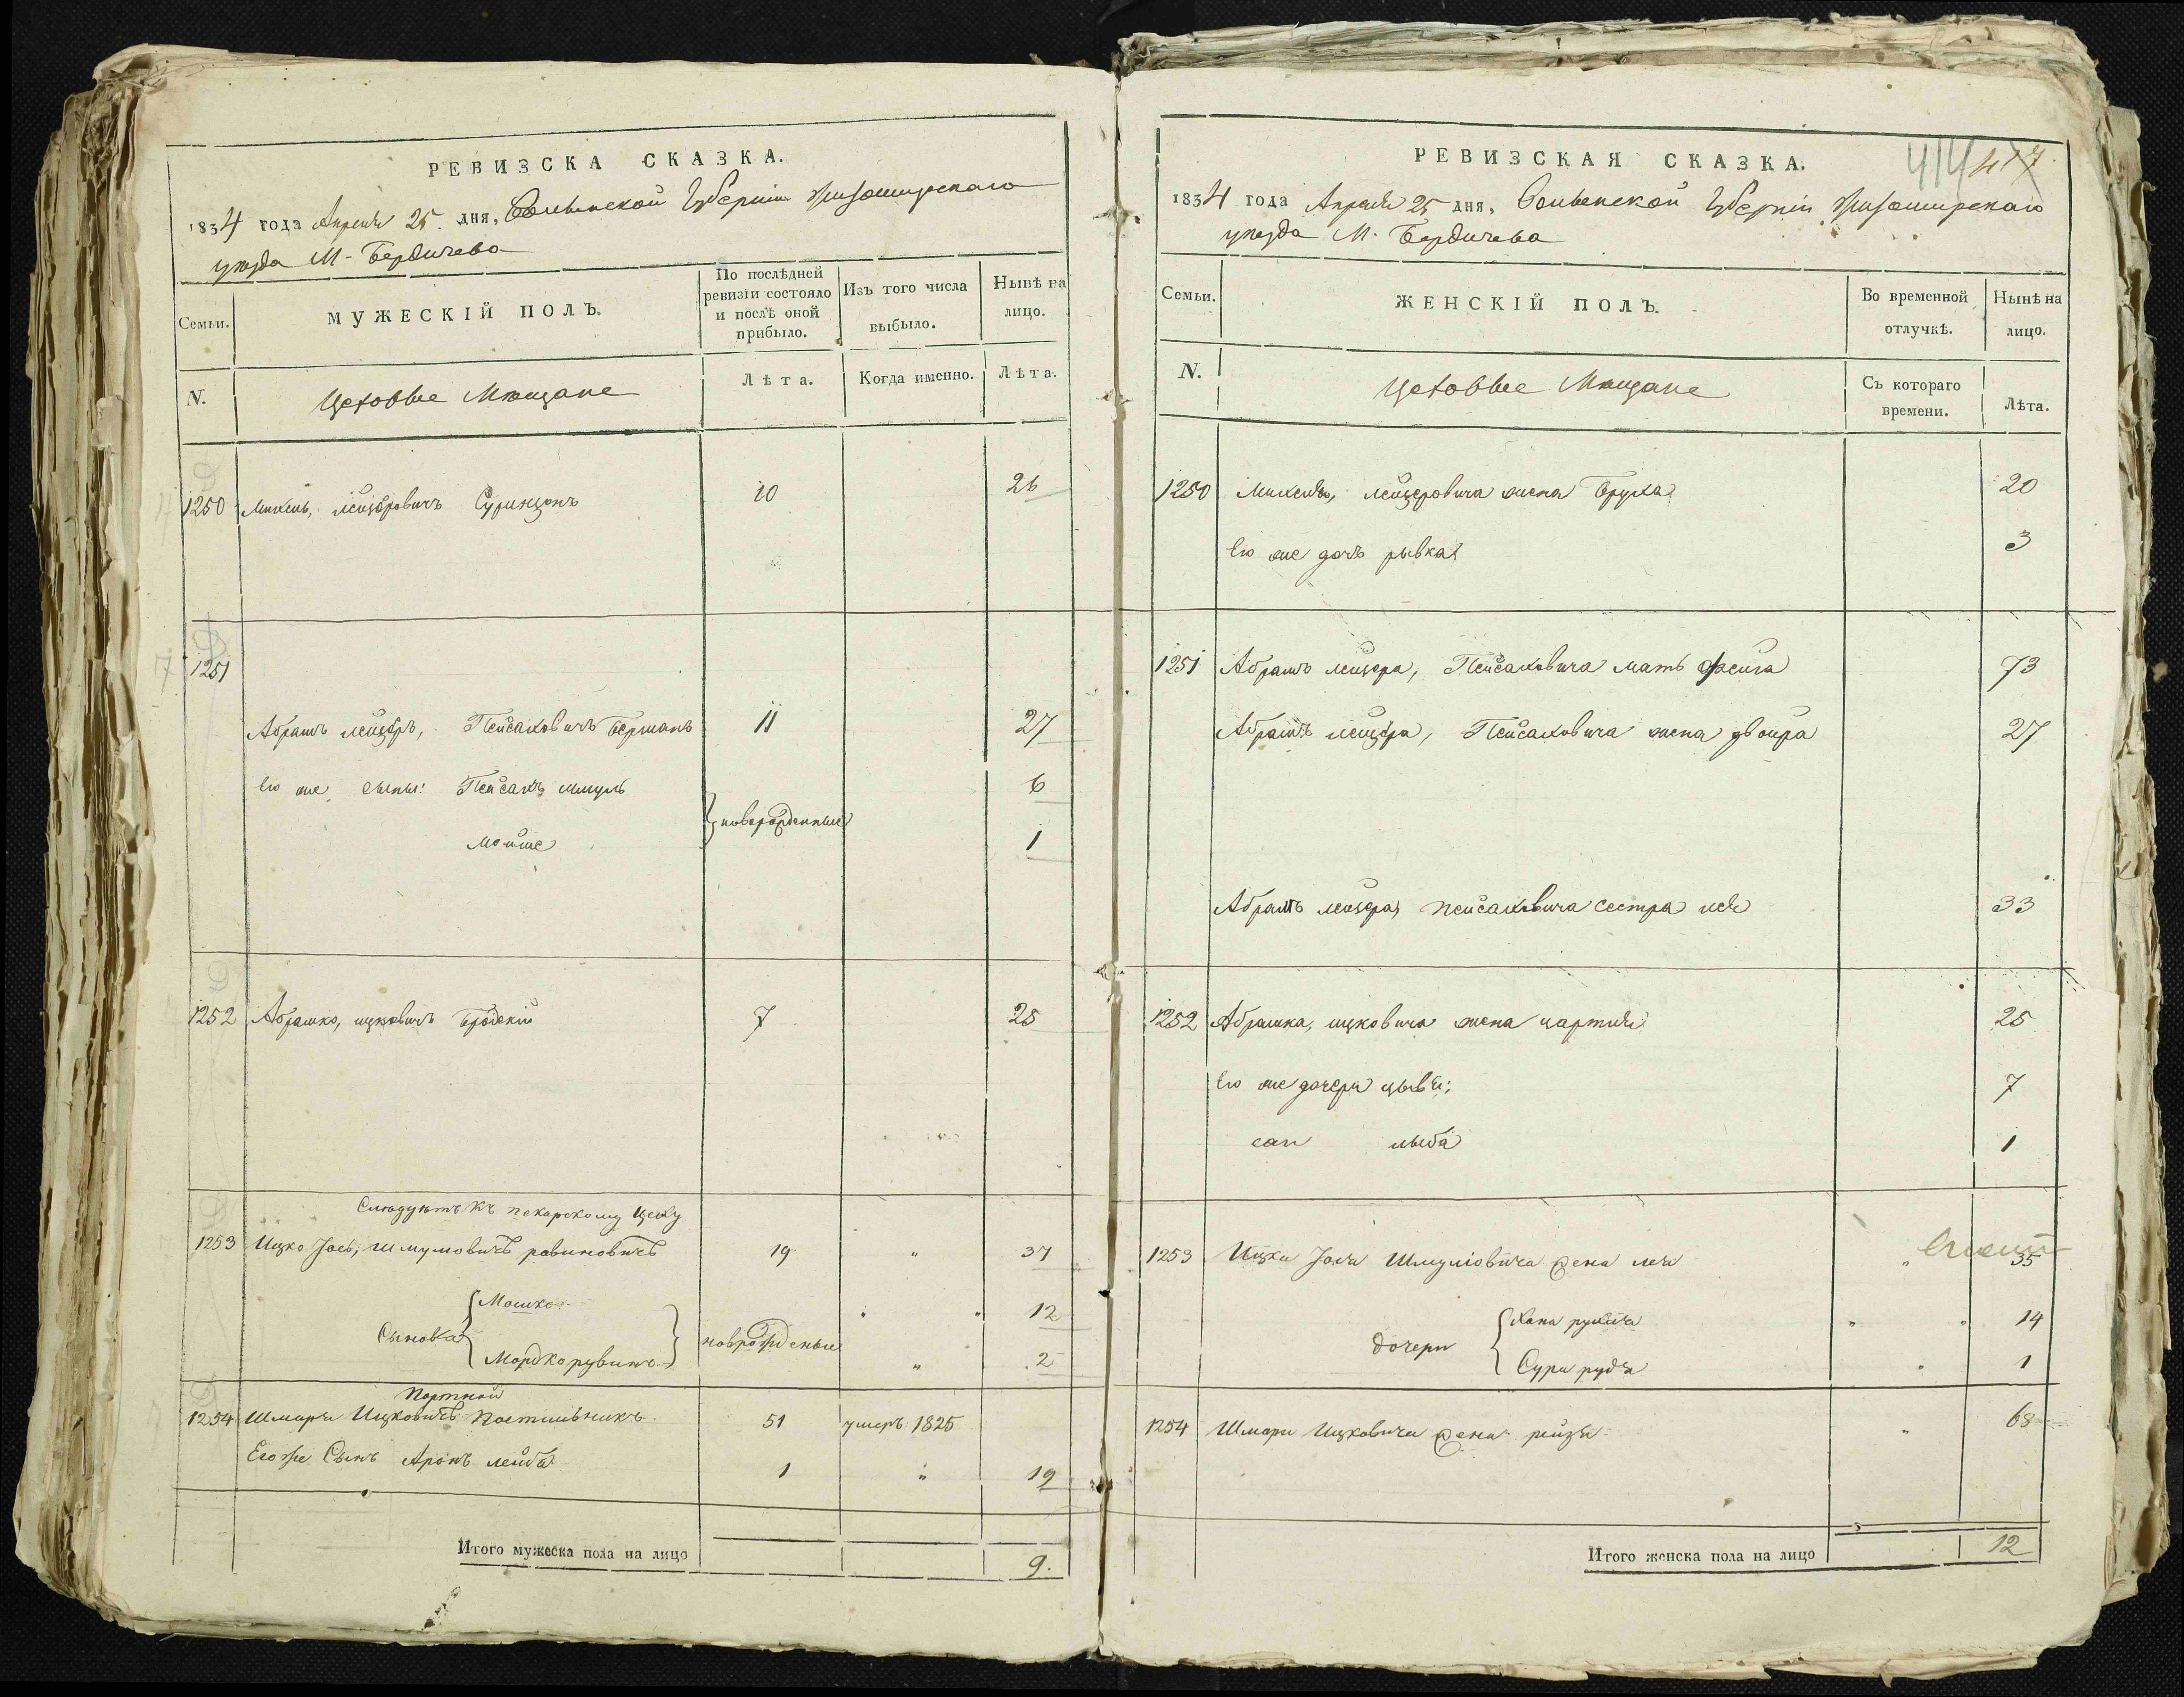 РЕВИЗСКА СКАЗКА.
1834 года Апреля 25 дня, Волынской Губернии Житомирскаго
уезда М. Бердичева
Семьи.
МУЖЕСКІЙ ПОЛЪ.
По послѣдней ревизіи состояло и послѣ оной прибыло.
Изъ того числа выбыло.
Нынѣ на лицо.
N.
Цеховые Мещане
Лѣта.
Когда именно.
Лѣта.
1250 Михель, лейзоровичъ 10 26
1251
Абрамъ лейзоръ, Пейсаховичъ Берманъ 11 27
Его же сыны: Пейсахъ шмуль 6
новорожденные
мойше 1
1252 Абрамко, ицковичъ Бродскій 7 25
Следуютъ къ пекарскому Цеху
1253 Ицко Іось, шмулювичъ рабиновичъ 19 " 37
Мошко " " 12
Сыновья новрожденые
Мордко рувинъ " 2
Портной
1254 Шмаря Ицковичъ Постильникъ 51 умеръ 1825
Его же Сынъ Аронъ лейба 1 " 19
Итого мужеска пола на лицо 9.
414 417
РЕВИЗСКАЯ СКАЗКА.
1834 года Апреля 25 дня, Волынской Губерніи Житомирскаго
уезда М. Бердичева
Семьи.
ЖЕНСКІЙ ПОЛЪ.
Во временной отлучкѣ.
Нынѣ на лицо.
N.
Цеховые Мещане
Съ котораго времени.
Лѣта.
1250 Михеля, лейзеровича жена Бруха 20
Его же дочь рывка 3
1251 Абрамъ лейзора, Пейсаховича мать Фейга 73
Абрамъ лейзора, Пейсаховича жена двойра 27
Абрамъ лейзора, пейсаховича сестра лея 33
1252 Абрамка, ицковича жена 25
Его же дочери цывья; 7
лыба 1
1253 Ицки Іося Шмулiовича жена лея " 35
Хана рухля " " 14
дочери
Сура рудя " 1
1254 Шмари Ицковича жена рейзя " 68
Итого женска пола на лицо 12